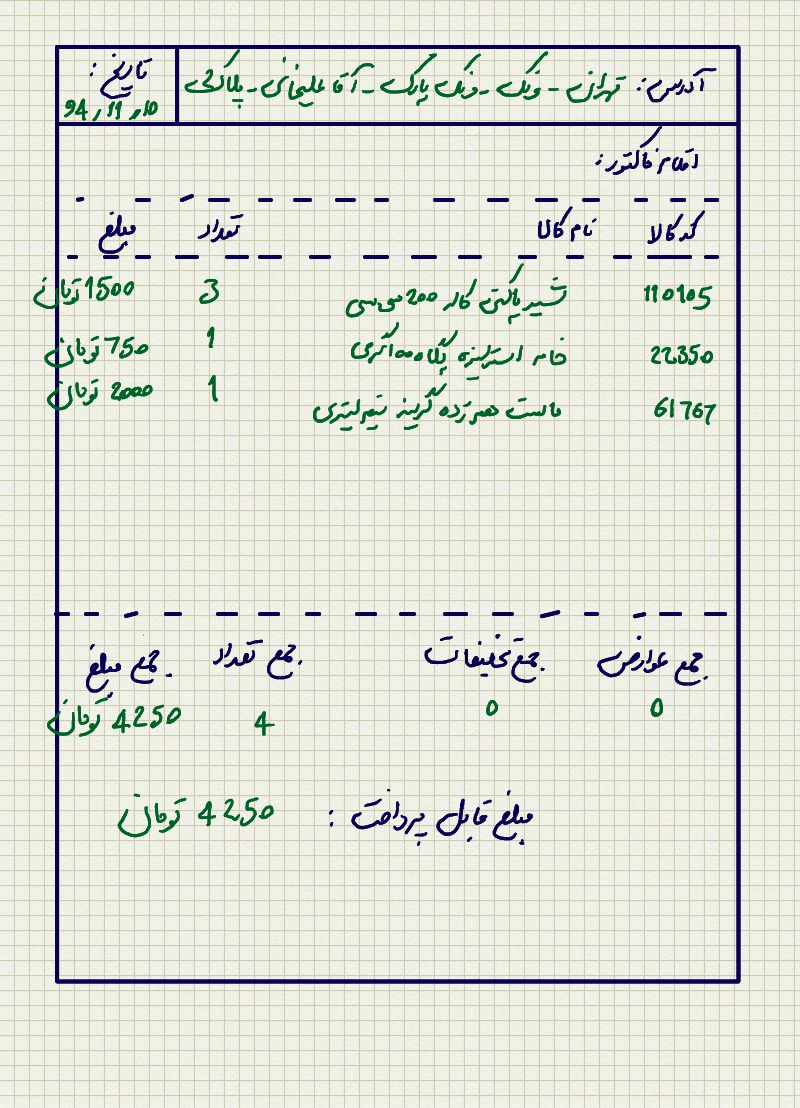 آدرس: تهران - ونک - ونک پارک - آقا علیخانی - پلاک 2
تاریخ:
94,11,10
اقلام فاکتور:
کد کالا نام کالا تعداد مبلغ
110105 شیر پاکتی کاله 200 سی سی 3 1500 تومان
22350 خامه استرلیزه پگاه 100 گرمی 1 750 تومان
61767 ماست همزده گرینه نیم لیتری 1 2000 تومان
جمع عوارض جمع تخفیفات جمع تعداد جمع مبلغ
0 0 4 4250 تومان
مبلغ قابل پرداخت : 4250 تومان